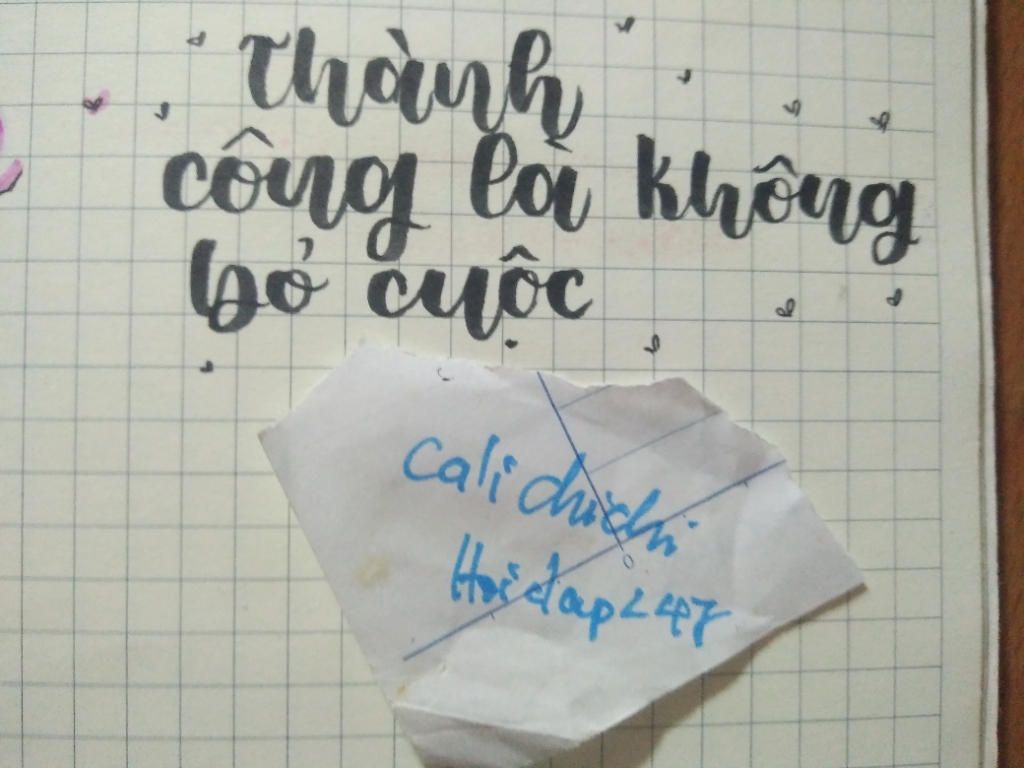 Thành
công là không
bỏ cuộc
Cali chichi
Hoidap247